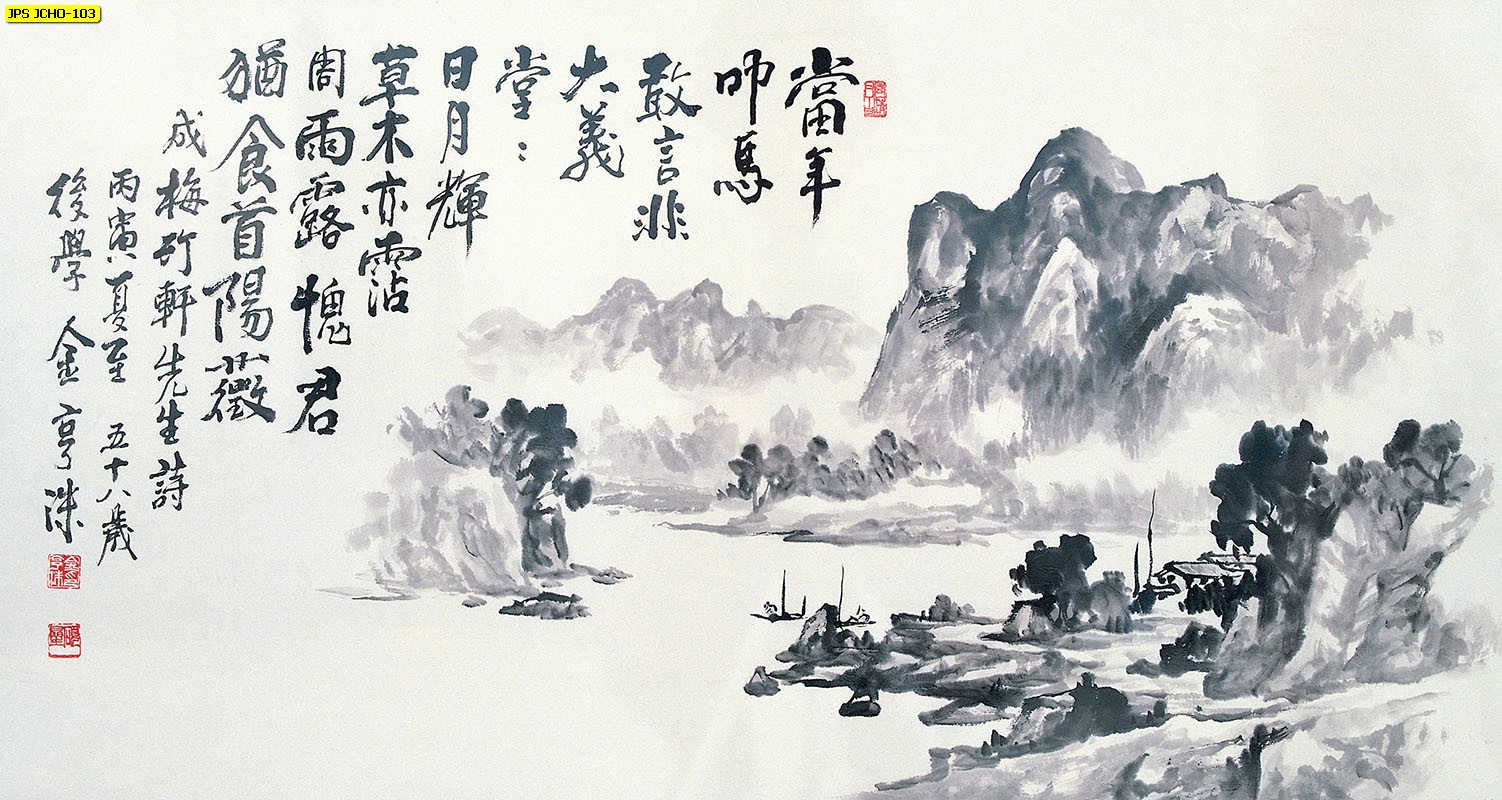 JPS JCHO-103
當年
叩馬
敢言非
大義
堂〻
日月輝
草木亦霑
周雨露愧君
猶食首陽薇
成梅竹軒先生詩
丙寅夏至 五十八歲
後學 金亨洙